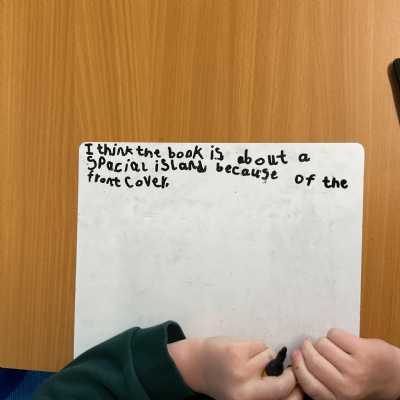 I think the book is about a
Spacial island because of the
front cover.